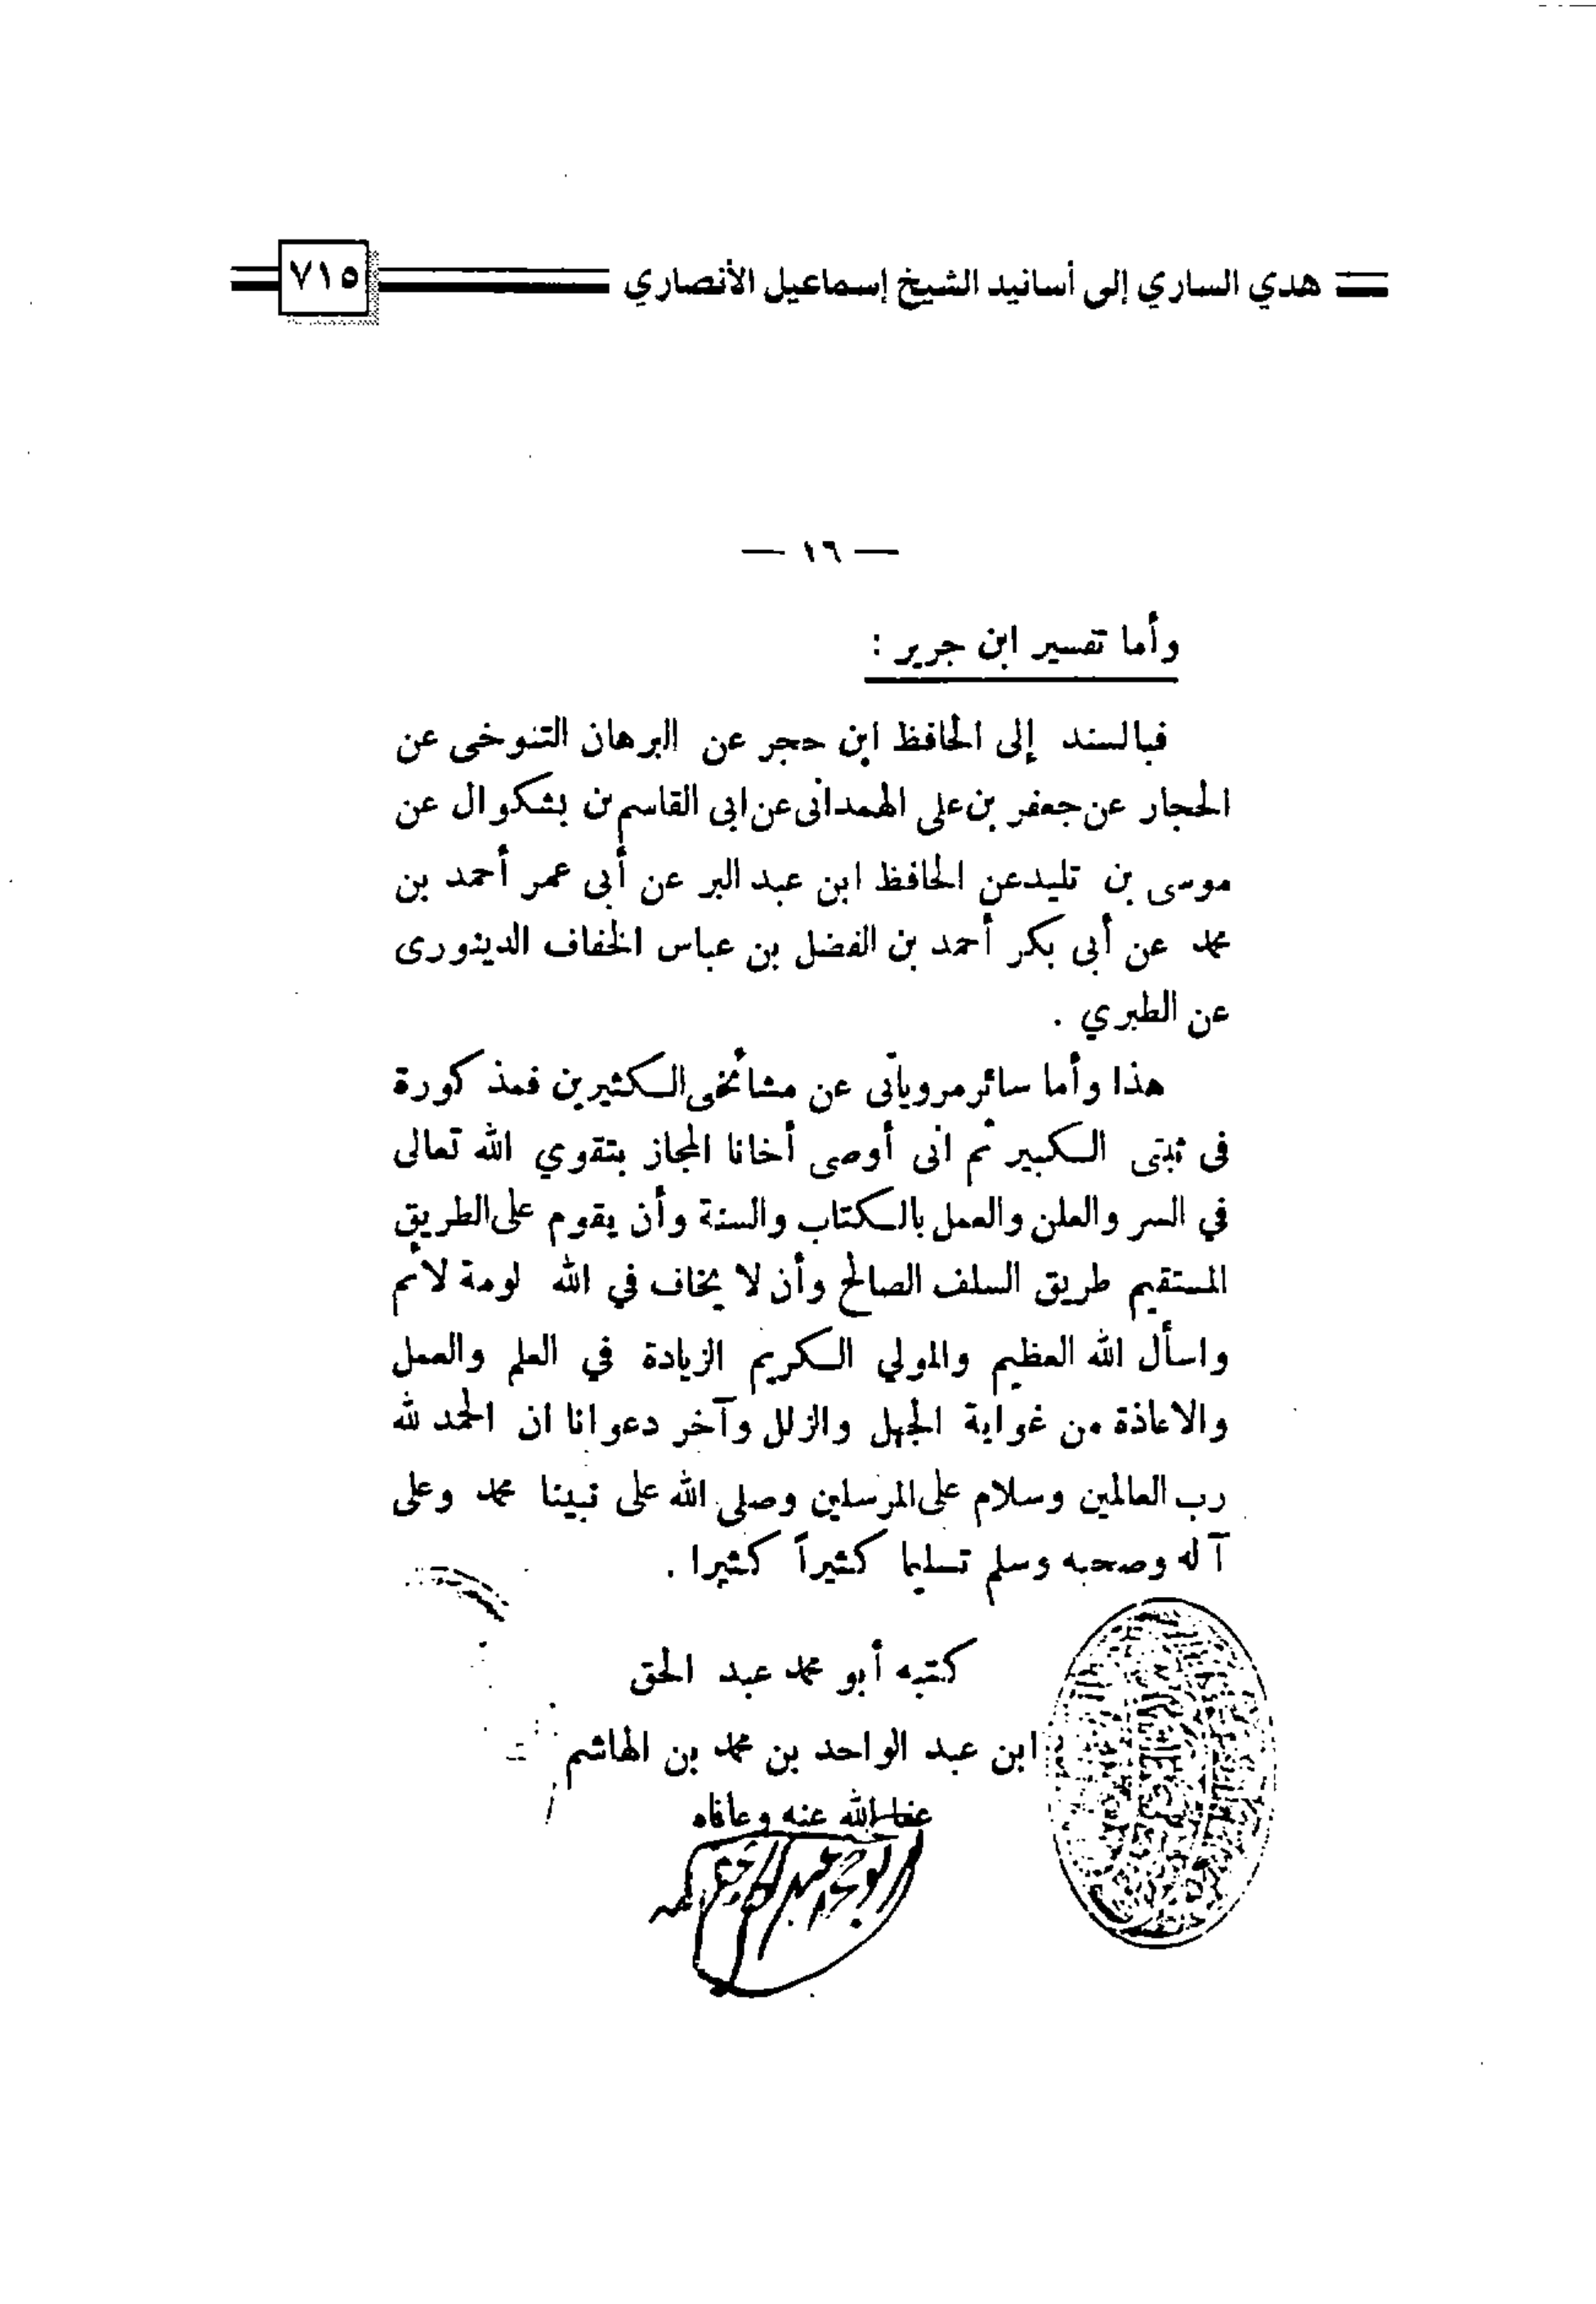 هدي الساري إلى أسانيد الشيخ إسماعيل الأنصاري ٧١٥
— ١٦ —
وأما تفسير ابن جرير :
فبالسند إلى الحافظ ابن حجر عن البرهان التنوخى عن
الحجار عن جعفر بن على الهمدانى عن ابى القاسم بن بشكوال عن
موسى بن تليد عن الحافظ ابن عبد البر عن أبى عمر أحمد بن
محمد عن أبى بكر أحمد بن الفضل بن عباس الخفاف الدينورى
عن الطبري .
هذا وأما سائر مروياتى عن مشائخى الكثيرين فمذكورة
فى ثبتى الكبير ثم انى أوصى أخانا المجاز بتقوي الله تعالى
في السر والعلن والعمل بالكتاب والسنة وأن يقوم على الطريق
المستقيم طريق السلف الصالح وأن لا يخاف في الله لومة لائم
واسأل الله العظيم والمولي الكريم الزيادة في العلم والعمل
والاعاذة من غواية الجهل والزلل وآخر دعوانا ان الحمد لله
رب العالمين وسلام على المرسلين وصلى الله على نبينا محمد وعلى
آله وصحبه وسلم تسليما كثيراً كثيرا .
كتبه أبو محمد عبد الحق
ابن عبد الواحد بن محمد بن الهاشم
عفا الله عنه وعافاه